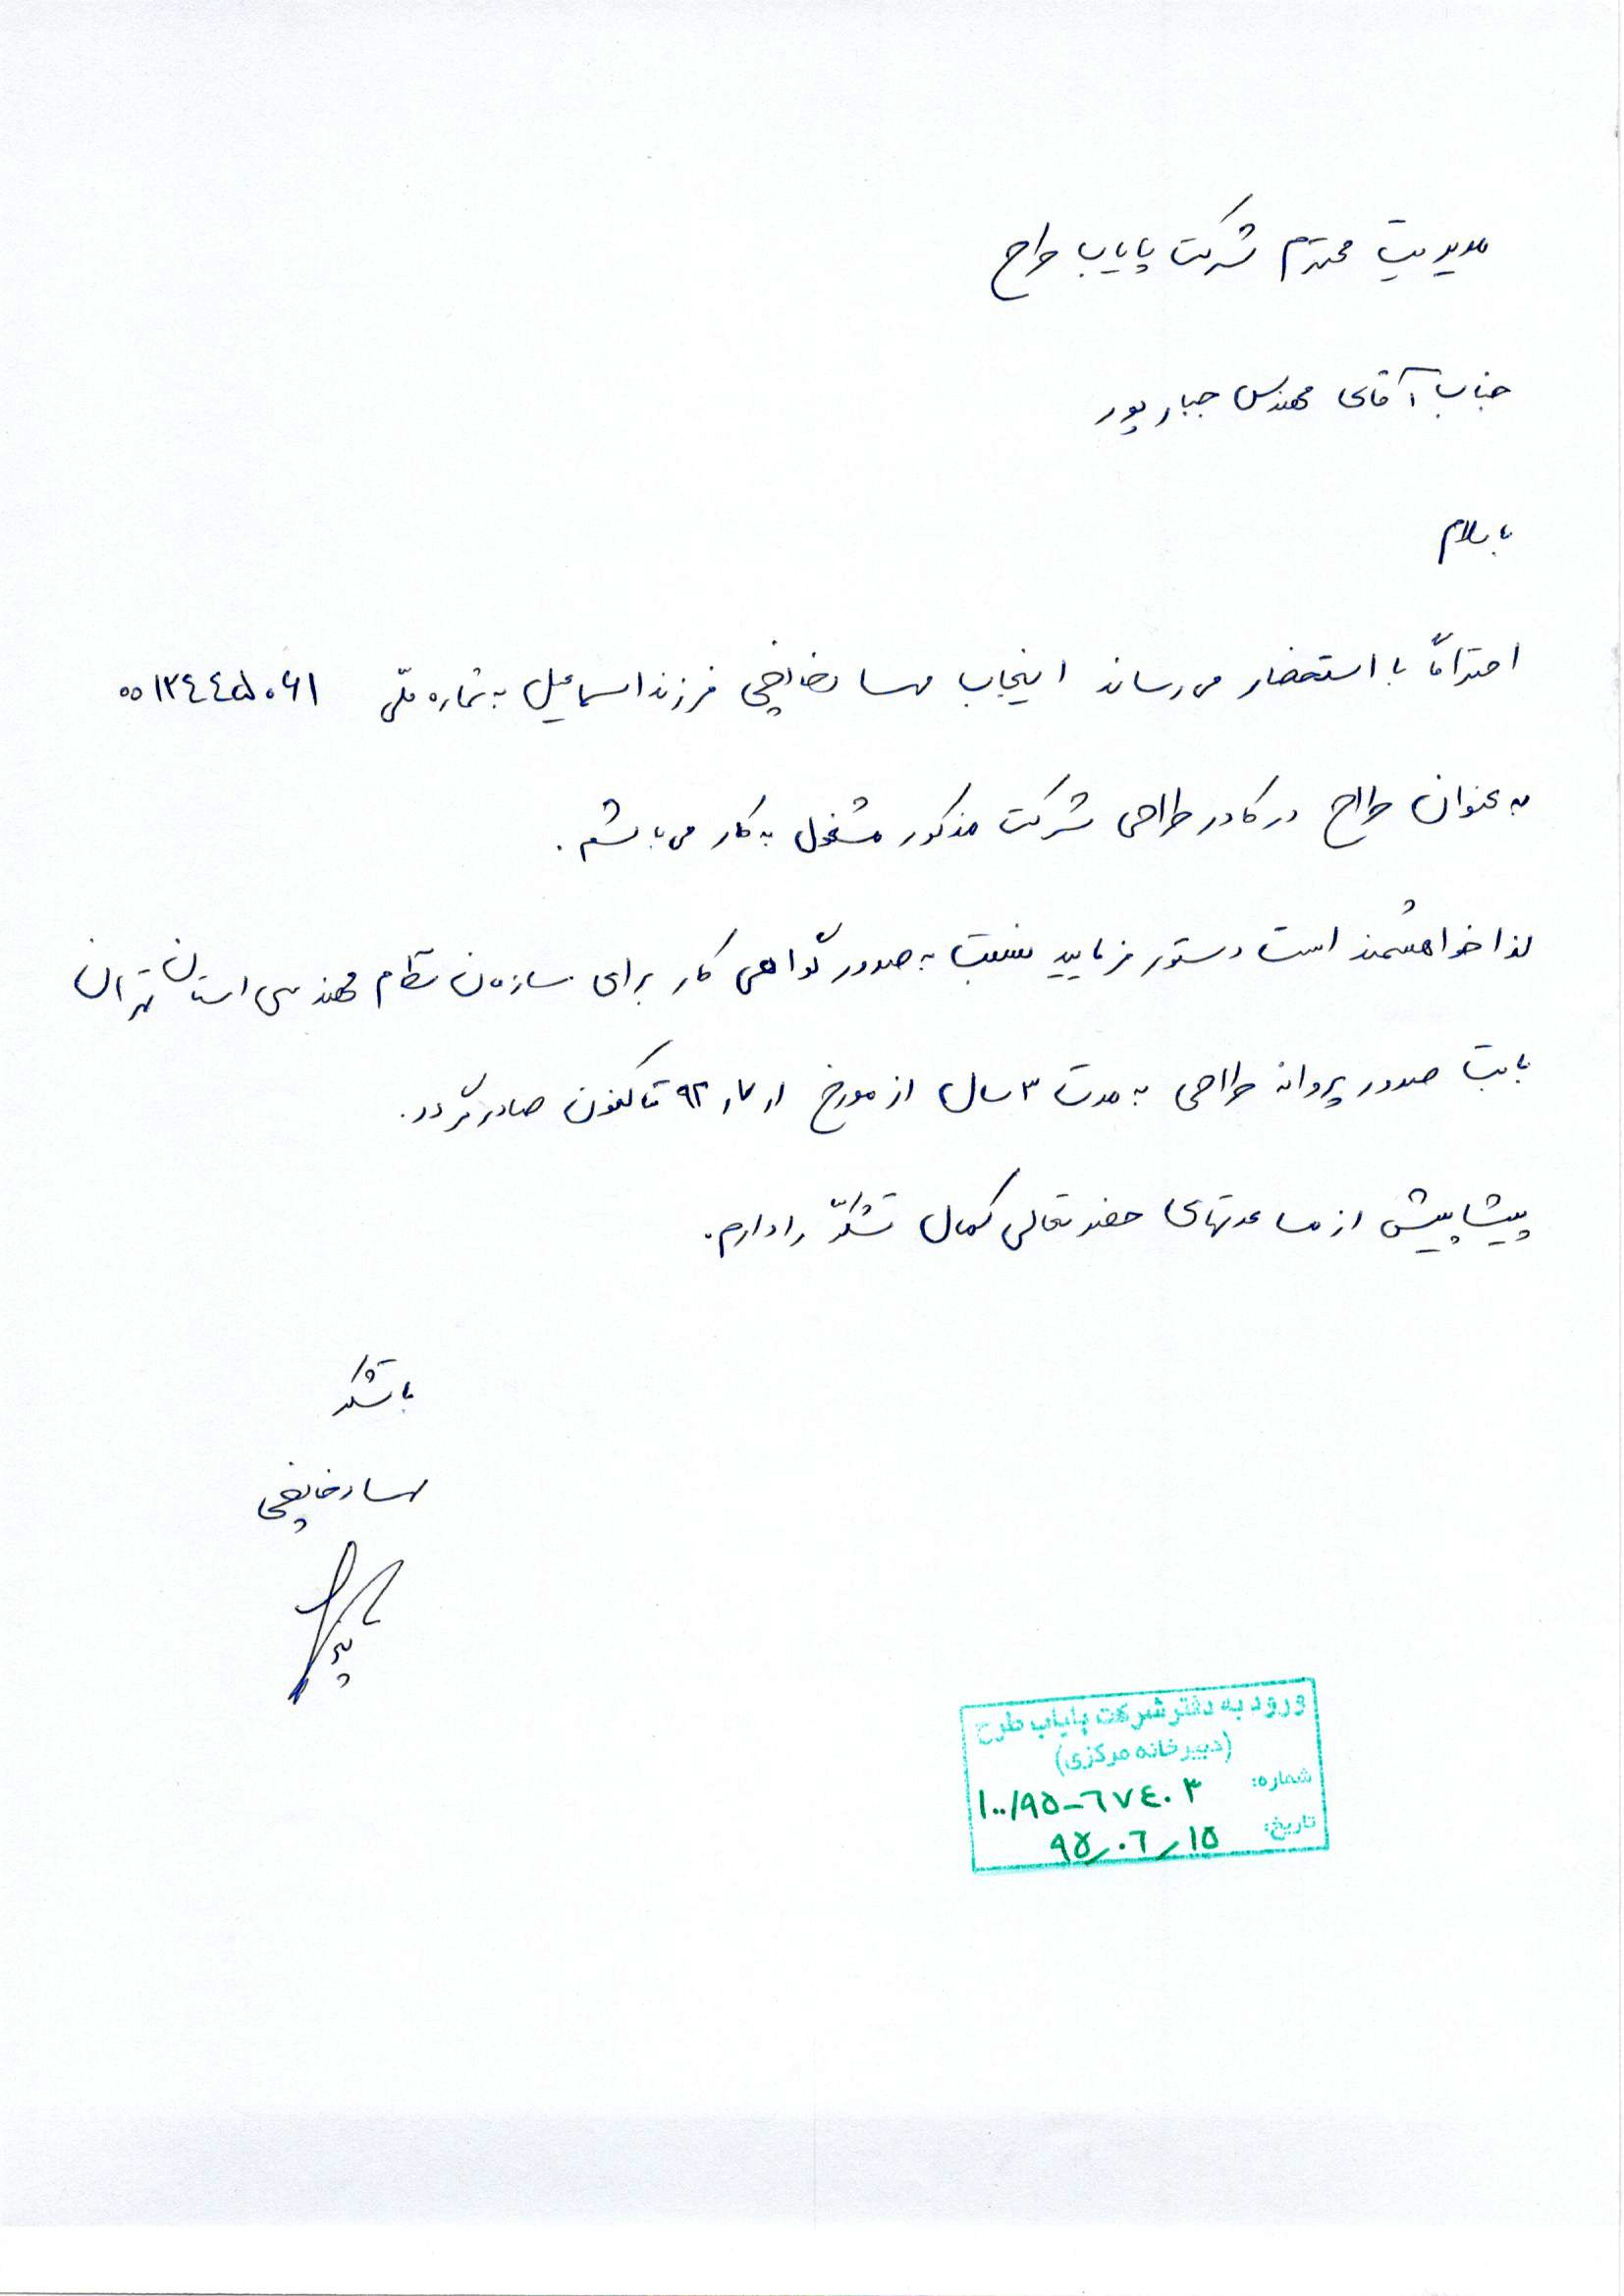 مدیریت محترم شرکت پایاب طرح
جناب آقای مهندس جبارپور
با سلام
احتراماً با استحضار می‌رساند اینجانب مهسا رضایخچی فرزند اسماعیل به شماره ملّی ۰۰۱۳۴۴۵۰۶۱
به عنوان طراح در کادر طراحی شرکت مذکور مشغول به کار می‌باشم.
لذا خواهشمند است دستور فرمایید نسبت به صدور گواهی کار برای سازمان نظام مهندسی استان تهران
بابت صدور پروانه طراحی به مدت ۳ سال از مورخ ۹۲٫۷٫۱ تاکنون صادر گردد.
پیشاپیش از مساعدتهای حضرتعالی کمال تشکّر را دارم.
با تشکر
مهسا
ورود به دفتر شرکت پایاب طرح
(دبیرخانه مرکزی)
شماره: ۱۰۰/۹۵-۶۷۴۰۳
تاریخ: ۹۵/۰۶/۱۵